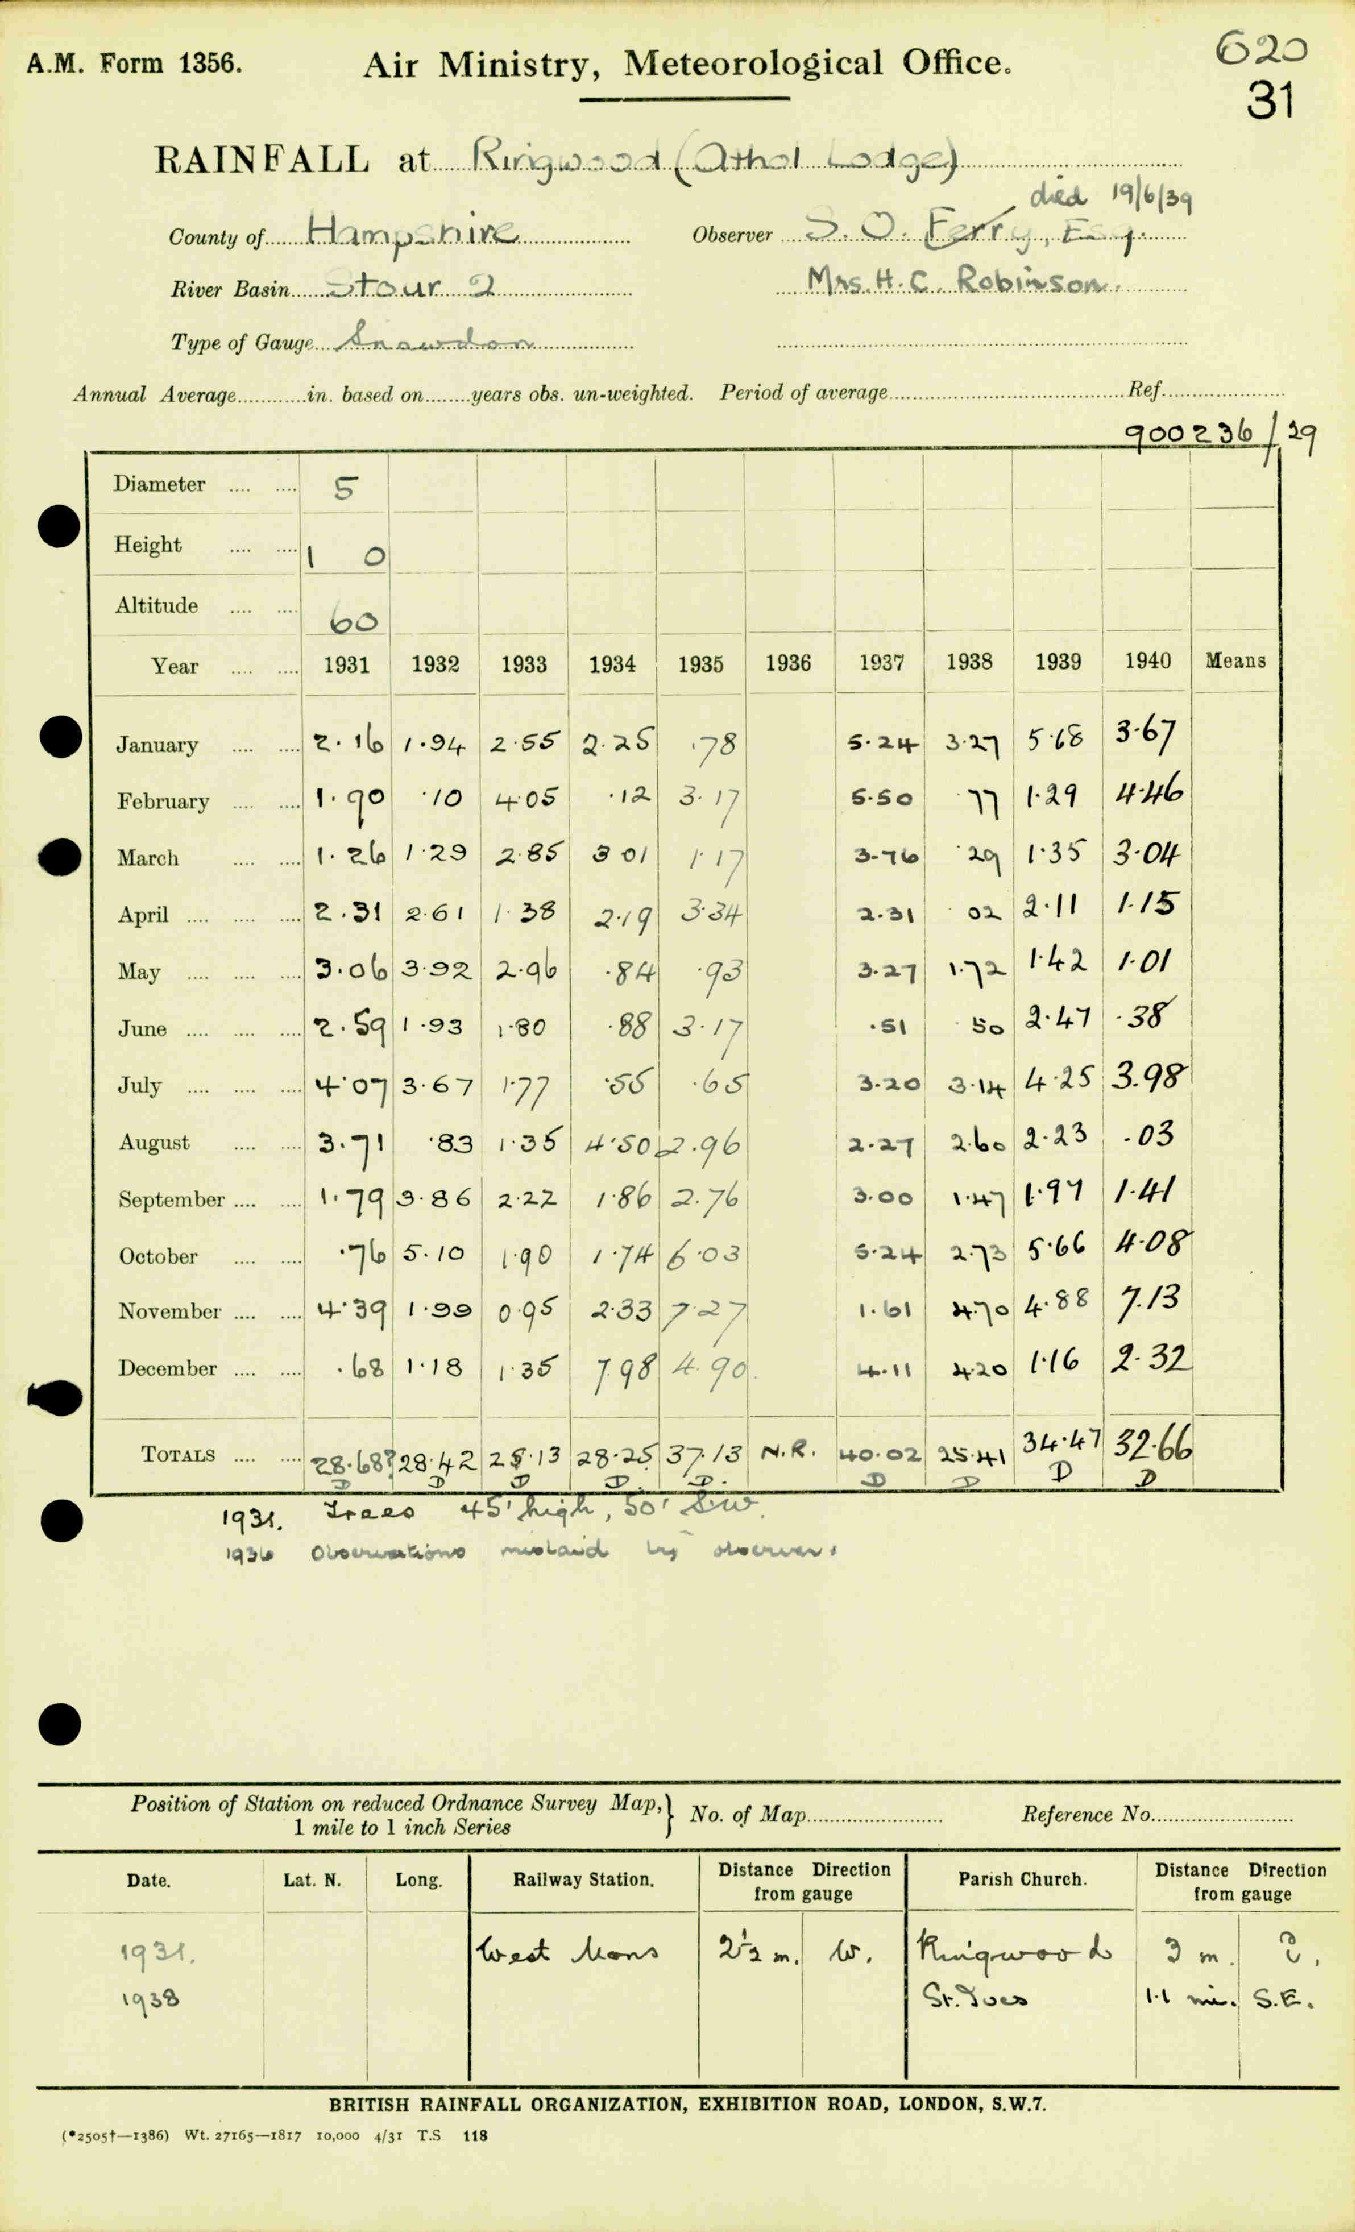 A.M. Form 1356. Air Ministry, Meteorological Office. 620
31
RAINFALL at Ringwood (Athol Lodge)
died 19/6/39
County of Hampshire Observer S. O. Ferry, Esq.
River Basin Stour 2 Mrs. H. C. Robinson.
Type of Gauge Snowdon
Annual Average in. based on years obs. un-weighted. Period of average Ref.
900236/29
Diameter 5
Height 1 0
Altitude 60
Year 1931 1932 1933 1934 1935 1936 1937 1938 1939 1940 Means
January 2.16 1.94 2.55 2.25 .78 5.24 3.27 5.68 3.67
February 1.90 .10 4.05 .12 3.17 5.50 .77 1.29 4.46
March 1.26 1.29 2.85 3.01 1.17 3.76 .29 1.35 3.04
April 2.31 2.61 1.38 2.19 3.34 2.31 .02 2.11 1.15
May 3.06 3.92 2.96 .84 .93 3.27 1.72 1.42 1.01
June 2.59 1.93 1.80 .88 3.17 .51 .50 2.47 .38
July 4.07 3.67 1.77 .55 .65 3.20 3.14 4.25 3.98
August 3.71 .83 1.35 4.50 2.96 2.27 2.60 2.23 .03
September 1.79 3.86 2.22 1.86 2.76 3.00 1.47 1.97 1.41
October .76 5.10 1.90 1.74 6.03 5.24 2.73 5.66 4.08
November 4.39 1.99 0.95 2.33 7.27 1.61 4.70 4.88 7.13
December .68 1.18 1.35 7.98 4.90 4.11 4.20 1.16 2.32
TOTALS 28.68? 28.42 25.13 28.25 37.13 N.R. 40.02 25.41 34.47 32.66
D D D D D. D D D D
1931. Trees 45' high, 50' S.W.
1936 Observations mislaid by observer.
Position of Station on reduced Ordnance Survey Map, 1 mile to 1 inch Series } No. of Map Reference No.
Date. Lat. N. Long. Railway Station. Distance Direction from gauge Parish Church. Distance Direction from gauge
1931. West Mons 2½ m. W. Ringwood 3 m.
1938 St. Ives 1.1 mi. S.E.
BRITISH RAINFALL ORGANIZATION, EXHIBITION ROAD, LONDON, S.W.7.
(*2505†—1386) Wt. 27165—1817 10,000 4/31 T.S 118